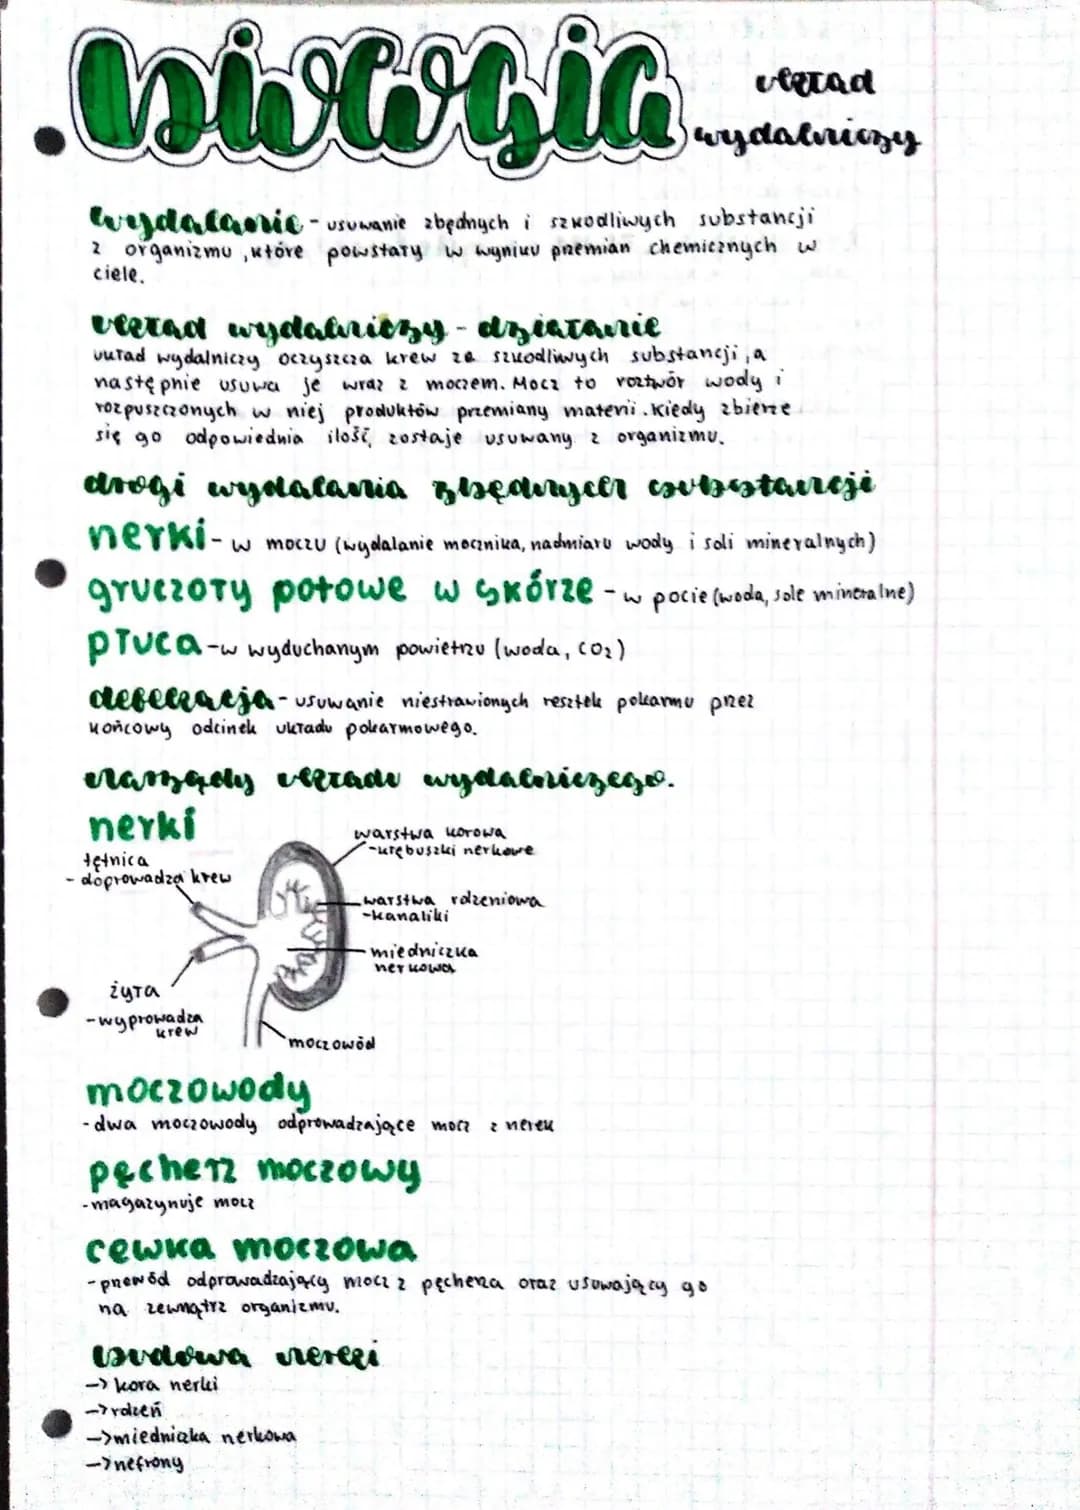 biologia
układ
wydalniczy
wydalanie - usuwanie zbędnych i szkodliwych substancji
z organizmu, które powstały w wyniku przemian chemicznych w
ciele.
układ wydalniczy - działanie
układ wydalniczy oczyszcza krew ze szkodliwych substancji, a
następnie usuwa je wraz z moczem. Mocz to roztwór wody i
rozpuszczonych w niej produktów przemiany materii. Kiedy zbierze
się go odpowiednia ilość, zostaje usuwany z organizmu.
drogi wydalania zbędnych substancji
nerki - w moczu (wydalanie mocznika, nadmiaru wody i soli mineralnych)
gruczoły potowe w skórze - w pocie (woda, sole mineralne)
płuca - w wyduchanym powietrzu (woda, CO₂)
defekacja - usuwanie niestrawionych resztek pokarmu przez
końcowy odcinek układu pokarmowego.
narządy układu wydalniczego.
nerki
tętnica
- doprowadza krew
warstwa korowa
- kłębuszki nerkowe
warstwa rdzeniowa
- kanaliki
miedniczka
nerkowa
żyła
- wyprowadza
krew
moczowód
moczowody
- dwa moczowody odprowadzające mocz z nerek
pęcherz moczowy
- magazynuje mocz
cewka moczowa
- przewód odprowadzający mocz z pęcherza oraz usuwający go
na zewnątrz organizmu.
budowa nerki
-> kora nerki
-> rdzeń
-> miedniczka nerkowa
-> nefrony